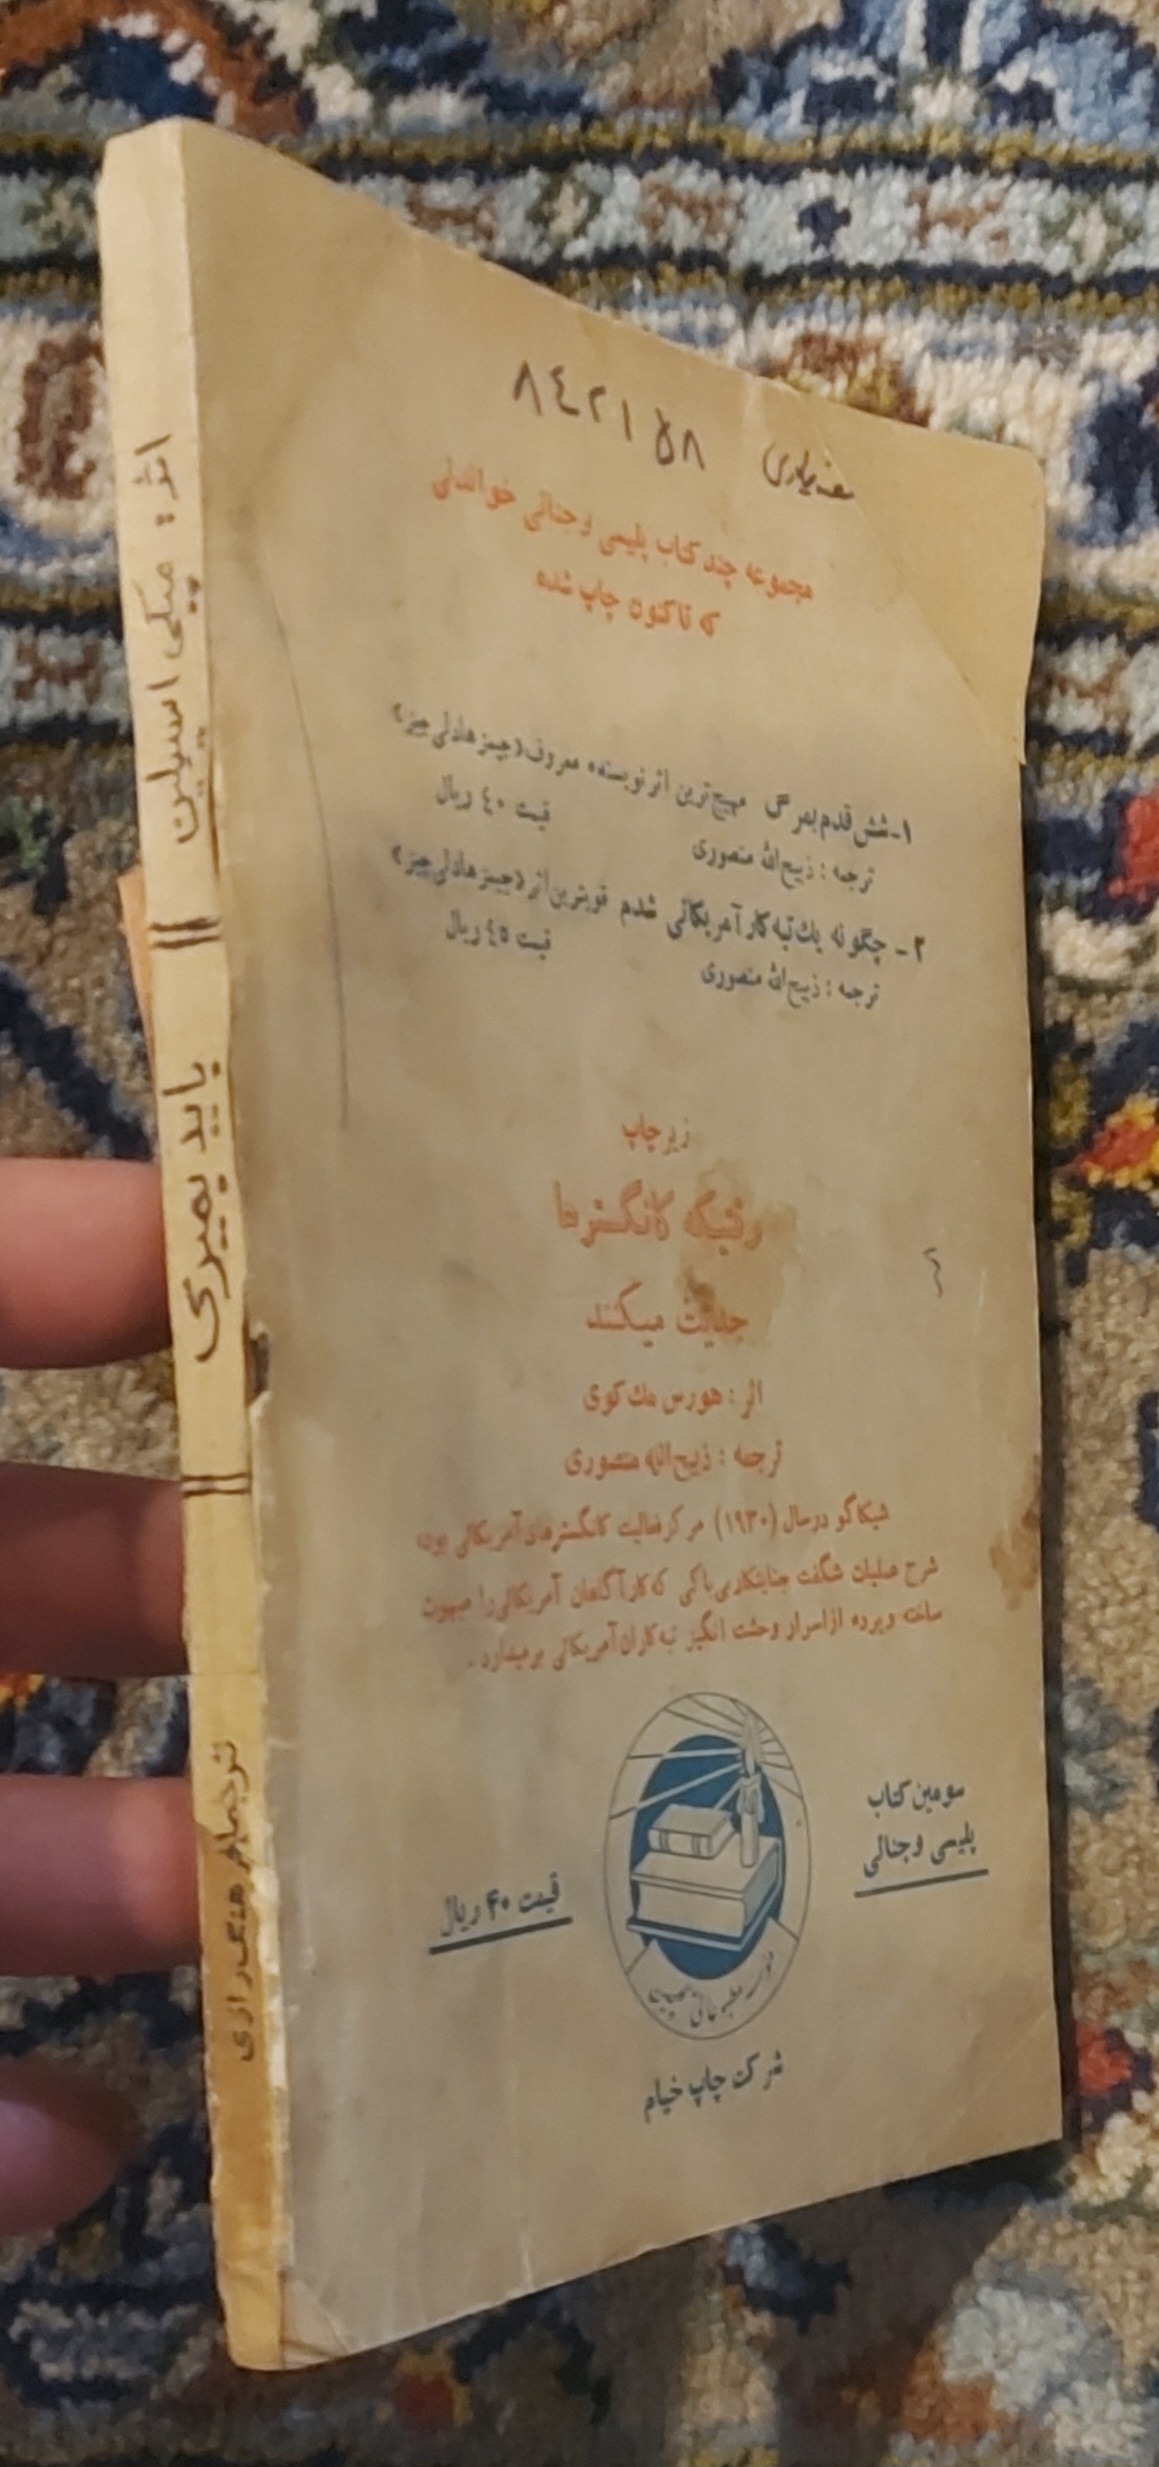 اثر: میکی اسپیلین
باید بمیری
ترجمه: هنگ رازی
۸٤۲۱۵۸
مجموعه چند کتاب پلیسی و جنائی خواندنی
که تاکنون چاپ شده
۱- شش قدم بمرگ مهیج‌ترین اثر نویسنده معروف «جیمز هادلی چیز»
ترجمه: ذبیح‌الله منصوری قیمت ٤۰ ریال
۲- چگونه یك تبه کار آمریکائی شدم قویترین اثر «جیمز هادلی چیز»
ترجمه: ذبیح‌الله منصوری قیمت ٤۵ ریال
زیر چاپ
وقتیکه گانگسترها
جدیت میکنند
اثر: هورس مك کوی
ترجمه: ذبیح‌الله منصوری
شیکاگو در سال (۱۹۳۰) مرکز فعالیت گانگسترهای آمریکائی بوده
شرح عملیات شگفت جنایتکار بی‌باکی که کارآگاهان آمریکائی را مبهوت
ساخته و پرده از اسرار وحشت انگیز تبه کاران آمریکائی برمیدارد.
سومین کتاب
پلیسی و جنائی
قیمت ۴۰ ریال
شرکت چاپ خیام